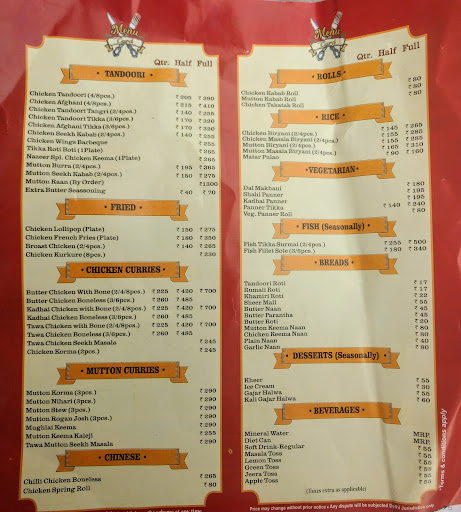 Menu
Qtr. Half Full
TANDOORI
Chicken Tandoori (4/8pcs.) ₹ 205 ₹ 390
Chicken Afghani (4/8pcs.) ₹ 215 ₹ 410
Chicken Tandoori Tangri (2/4pcs.) ₹ 140 ₹ 255
Chicken Tandoori Tikka (3/6pcs.) ₹ 170 ₹ 320
Chicken Afghani Tikka (3/6pcs.) ₹ 170 ₹ 320
Chicken Seekh Kabab (2/4pcs.) ₹ 140 ₹ 255
Chicken Wings Barbeque ₹ 255
Tikka Roti Boti (1Plate) ₹ 265
Nazeer Spl. Chicken Keema (1Plate) ₹ 265
Mutton Burra (2/4pcs.) ₹ 195 ₹ 365
Mutton Seekh Kabab (2/4pcs.) ₹ 150 ₹ 275
Mutton Raan (By Order) ₹1300
Extra Butter Seasoning ₹ 40 ₹ 70
FRIED
Chicken Lollipop (Plate) ₹ 150 ₹ 275
Chicken French Fries (Plate) ₹ 180 ₹ 350
Breast Chicken (2/4pcs.) ₹ 140 ₹ 265
Chicken Kurkure (8pcs.) ₹ 230
CHICKEN CURRIES
Butter Chicken with Bone (2/4/8pcs.) ₹ 225 ₹ 420 ₹ 700
Butter Chicken Boneless (3/6pcs.) ₹ 260 ₹ 485
Kadhai Chicken with Bone (2/4/8pcs.) ₹ 225 ₹ 420 ₹ 700
Kadhai Chicken Boneless (3/6pcs.) ₹ 260 ₹ 485
Tawa Chicken with Bone (2/4/8pcs.) ₹ 225 ₹ 420 ₹ 700
Tawa Chicken Boneless (3/6pcs.) ₹ 260 ₹ 485
Tawa Chicken Seekh Masala ₹ 245
Chicken Korma (2pcs.) ₹ 245
MUTTON CURRIES
Mutton Korma (3pcs.) ₹ 290
Mutton Nihari (3pcs.) ₹ 290
Mutton Stew (3pcs.) ₹ 290
Mutton Rogan Josh (3pcs.) ₹ 290
Mughlai Keema ₹ 290
Mutton Keema Kaleji ₹ 255
Tawa Mutton Seekh Masala ₹ 290
CHINESE
Chilli Chicken Boneless ₹ 265
Chicken Spring Roll ₹ 80
Menu
Qtr. Half Full
ROLLS
Chicken Kabab Roll ₹ 80
Mutton Kabab Roll ₹ 80
Chicken Takatak Roll ₹ 80
RICE
Chicken Biryani (2/4pcs.) ₹ 145 ₹ 265
Chicken Masala Biryani (2/4pcs.) ₹ 155 ₹ 285
Mutton Biryani (2/4pcs.) ₹ 155 ₹ 285
Mutton Masala Biryani (2/4pcs.) ₹ 165 ₹ 310
Matar Pulao ₹ 90 ₹ 160
VEGETARIAN
Dal Makhani ₹ 180
Shahi Panner ₹ 195
Kadhai Panner ₹ 195
Panner Tikka ₹ 140 ₹ 240
Veg. Panner Roll ₹ 80
FISH (Seasonally)
Fish Tikka Surmai (2/4pcs.) ₹ 255 ₹ 500
Fish Fillet Sole (3/6pcs.) ₹ 180 ₹ 340
BREADS
Tandoori Roti ₹ 17
Rumali Roti ₹ 17
Khamiri Roti ₹ 22
Sheer Mall ₹ 55
Butter Naan ₹ 45
Butter Parantha ₹ 45
Butter Roti ₹ 20
Mutton Keema Naan ₹ 80
Chicken Keema Naan ₹ 80
Plain Naan ₹ 40
Garlic Naan ₹ 80
DESSERTS (Seasonally)
Kheer ₹ 55
Ice Cream ₹ 30
Gajar Halwa ₹ 55
Kali Gajar Halwa ₹ 60
BEVERAGES
Mineral Water MRP.
Diet Can MRP.
Soft Drink-Regular ₹ 55
Masala Toss ₹ 55
Lemon Toss ₹ 55
Green Toss ₹ 55
Jeera Toss ₹ 55
Apple Toss ₹ 55
(Taxes extra as applicable)
*Terms & conditions apply
Price may change without prior notice • Any dispute will be subjected Delhi Jurisdiction only